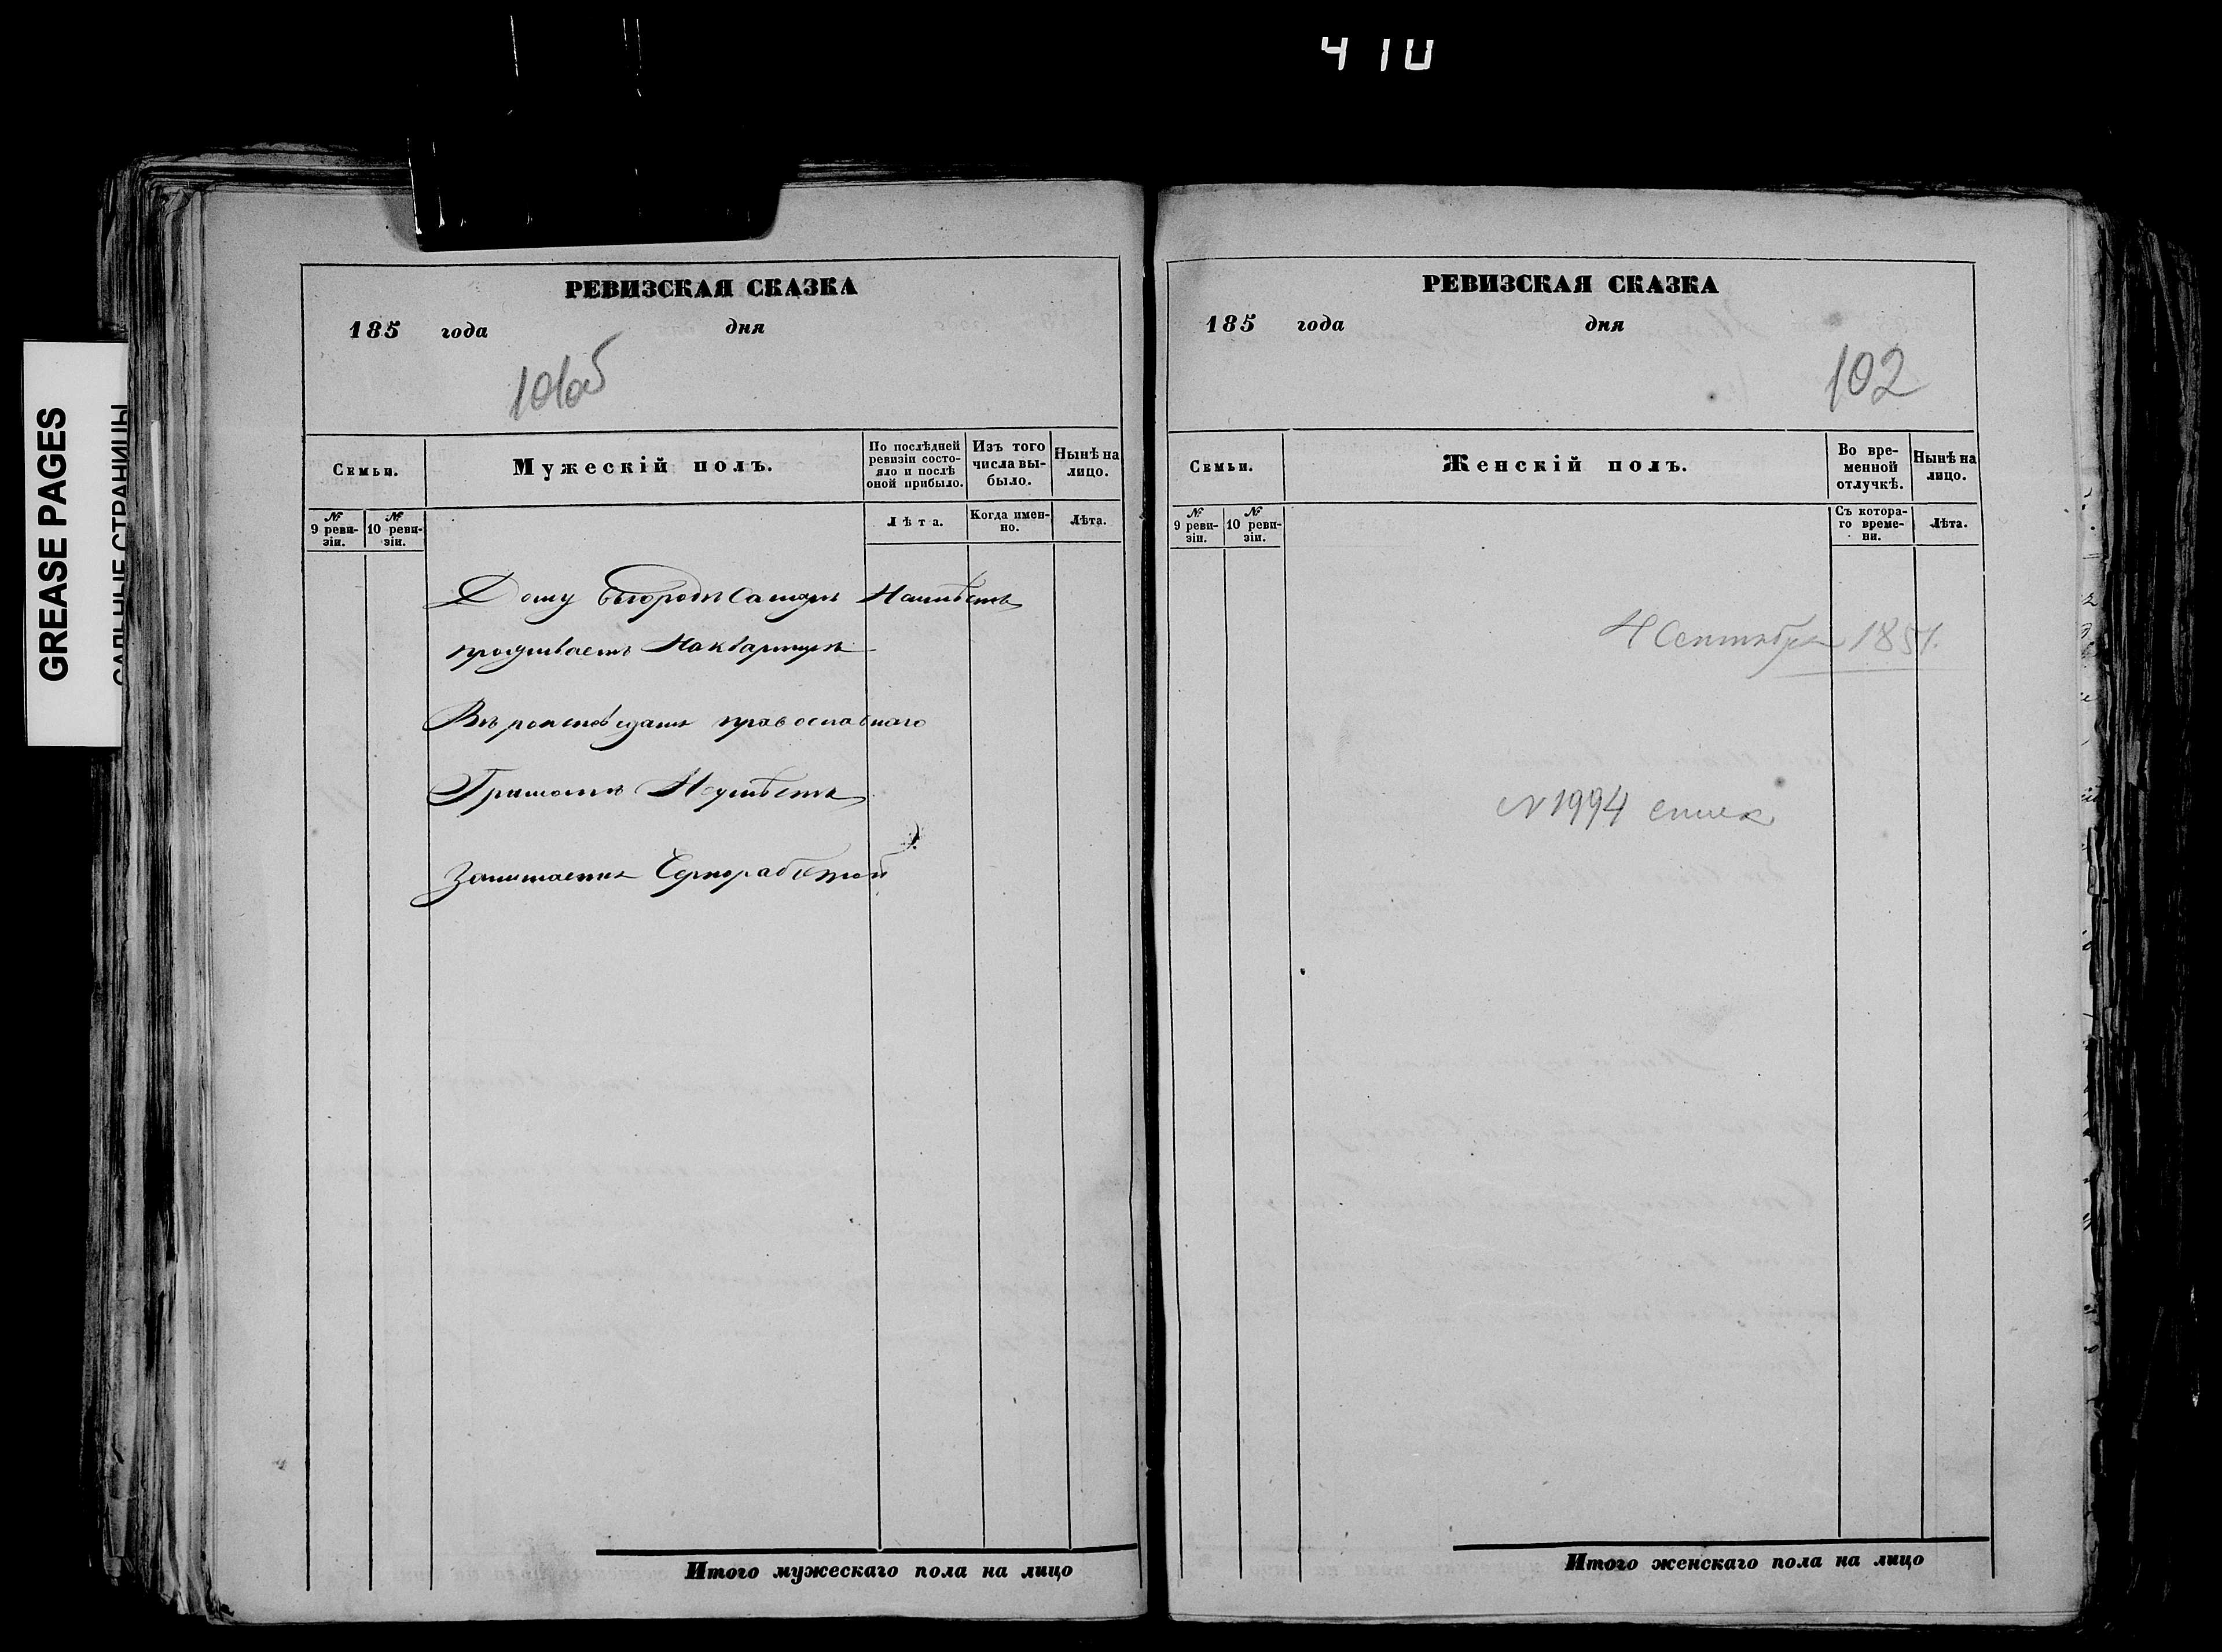 410
GREASE PAGES
САЛЬНЫЕ СТРАНИЦЫ
РЕВИЗСКАЯ СКАЗКА
185 года дня
101об
Семьи.
Мужескій полъ.
По послѣдней ревизіи состо-
яло и послѣ
оной прибыло.
Изъ того
числа вы-
было.
Нынѣ на
лицо.
№
9 реви-
зіи.
№
10 реви-
зіи.
Лѣта.
Когда имен-
но.
Лѣта.
Дому въгородѣ Самарѣ Неимѣетъ
проживаетъ Наквартирѣ
Вѣроисповѣданія православнаго
Грамотѣ Неумѣетъ
Занимается Чернорабочей
Итого мужескаго пола на лицо
РЕВИЗСКАЯ СКАЗКА
185 года дня
102
Семьи.
Женскій полъ.
Во вре-
менной
отлучкѣ.
Нынѣ на
лицо.
№
9 реви-
зіи.
№
10 реви-
зіи.
Съ котора-
го време-
ни.
Лѣта.
4 Сентября 1851.
№ 1994
Итого женскаго пола на лицо